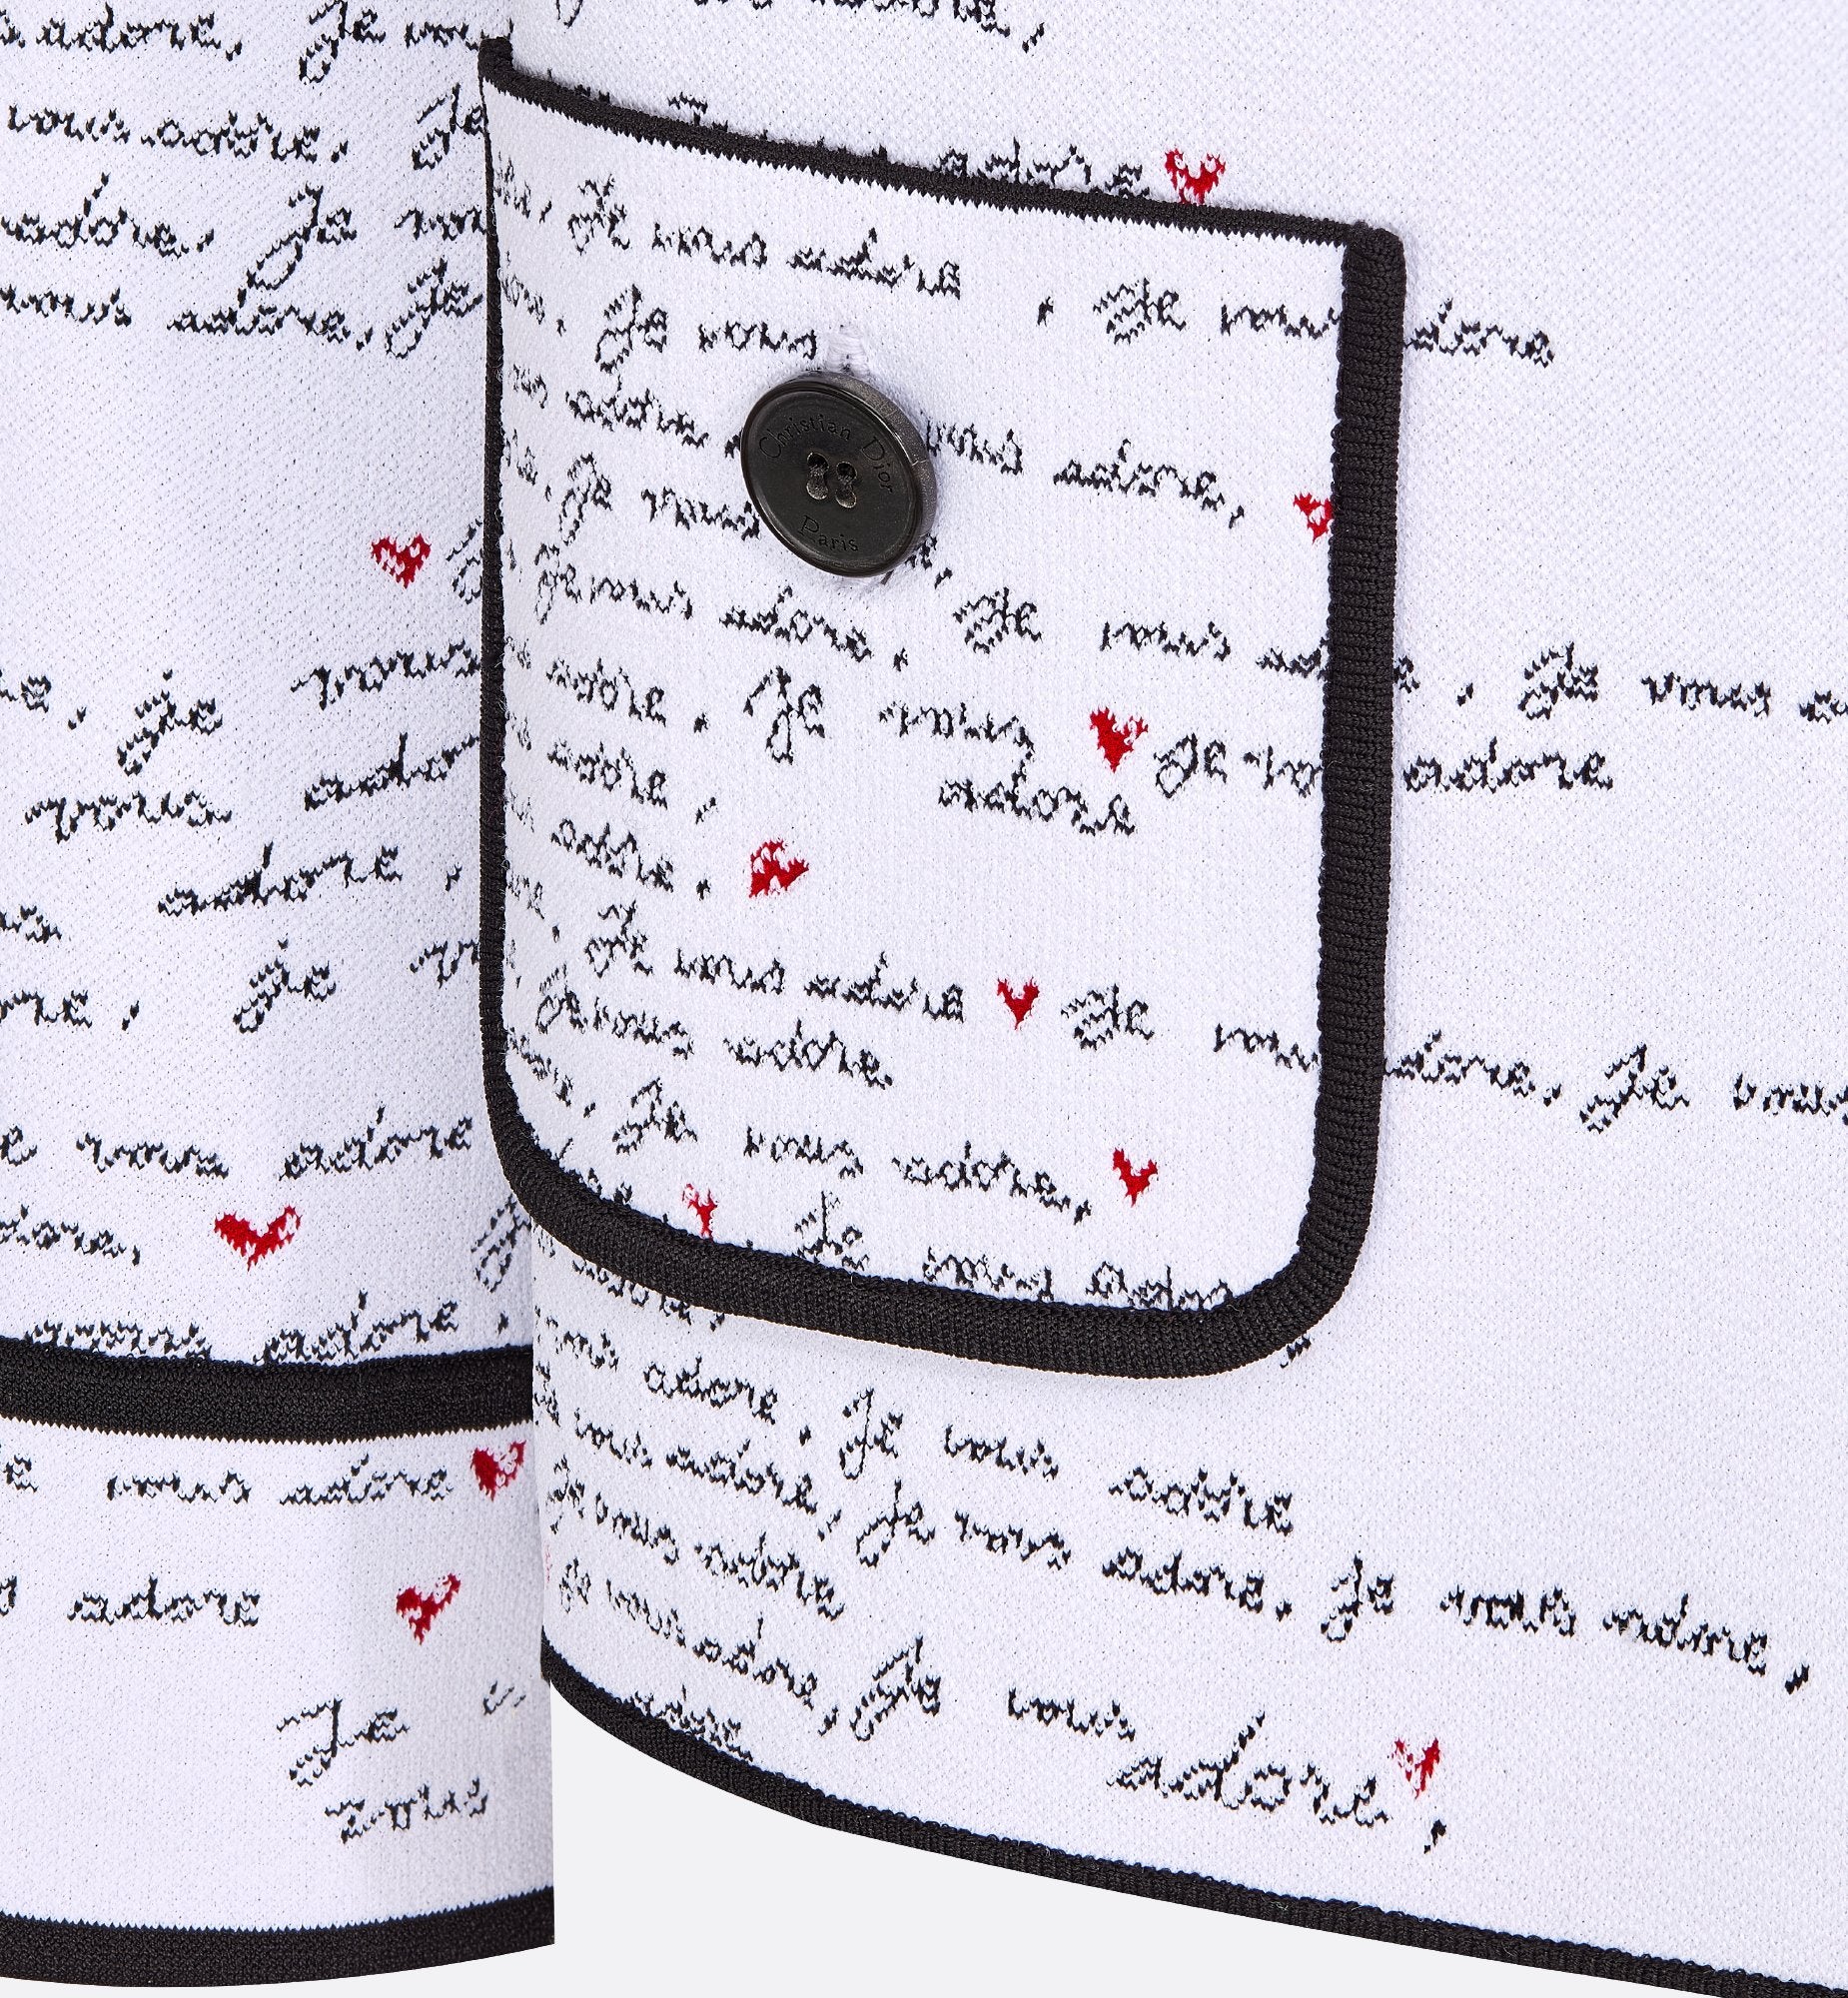 adore, Je vous
adore,
vous adore. Je
adore
adore. Je vous
Je vous adore, Je vous adore
vous adore, Je
Je vous
Christian Dior
Paris
adore
vous adore,
Je vous
Je vous adore, Je vous adore, Je vous
Je vous
adore, Je vous Je vous adore
vous adore
adore, adore
adore,
adore,
Je vous adore Je vous adore, Je vous
Je
Je vous adore.
Je vous adore,
vous adore
Je vous
adore,
vous adore,
vous adore, Je vous adore
vous adore
vous adore, Je vous adore, Je vous adore,
Je vous adore
adore
Je vous adore, Je vous adore,
Je
vous
adore